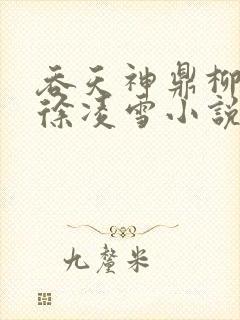 吞天神鼎柳
徐凌雪小說
九釐米